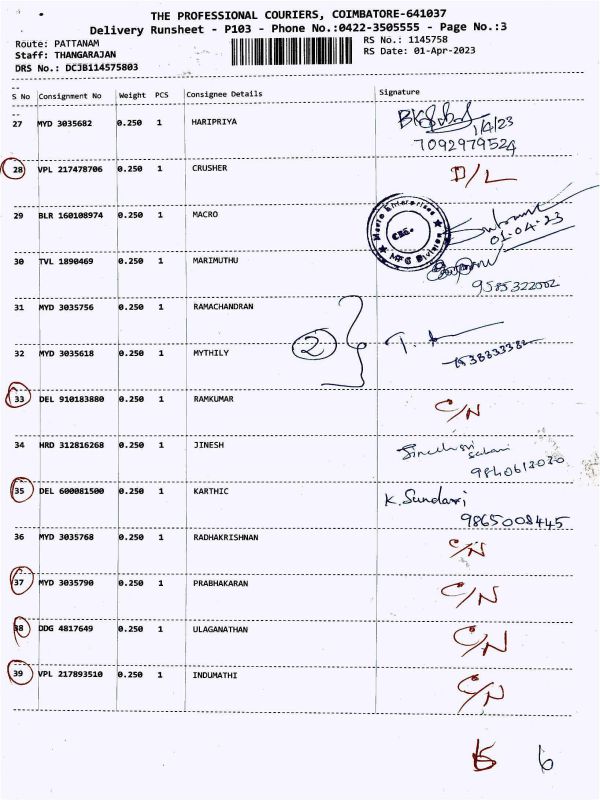 THE PROFESSIONAL COURIERS, COIMBATORE-641037
Delivery Runsheet - P103 - Phone No.:0422-3505555 - Page No.:3
Route: PATTANAM RS No.: 1145758
Staff: THANGARAJAN RS Date: 01-Apr-2023
DRS No.: DCJB114575803
S No Consignment No Weight PCS Consignee Details Signature
27 MYD 3035682 0.250 1 HARIPRIYA 1/4/23
7092979524
28 VPL 217478706 0.250 1 CRUSHER D/L
29 BLR 160108974 0.250 1 MACRO Enterprises MFG Division CBE. 01.04.23
30 TVL 1890469 0.250 1 MARIMUTHU
9585322002
31 MYD 3035756 0.250 1 RAMACHANDRAN
2
32 MYD 3035618 0.250 1 MYTHILY
33 DEL 910183880 0.250 1 RAMKUMAR C/N
34 HRD 312816268 0.250 1 JINESH
9840612020
35 DEL 600081500 0.250 1 KARTHIC K. Sundari
9865008445
36 MYD 3035768 0.250 1 RADHAKRISHNAN C/N
37 MYD 3035790 0.250 1 PRABHAKARAN C/N
38 DDG 4817649 0.250 1 ULAGANATHAN C/N
39 VPL 217893510 0.250 1 INDUMATHI C/N
6